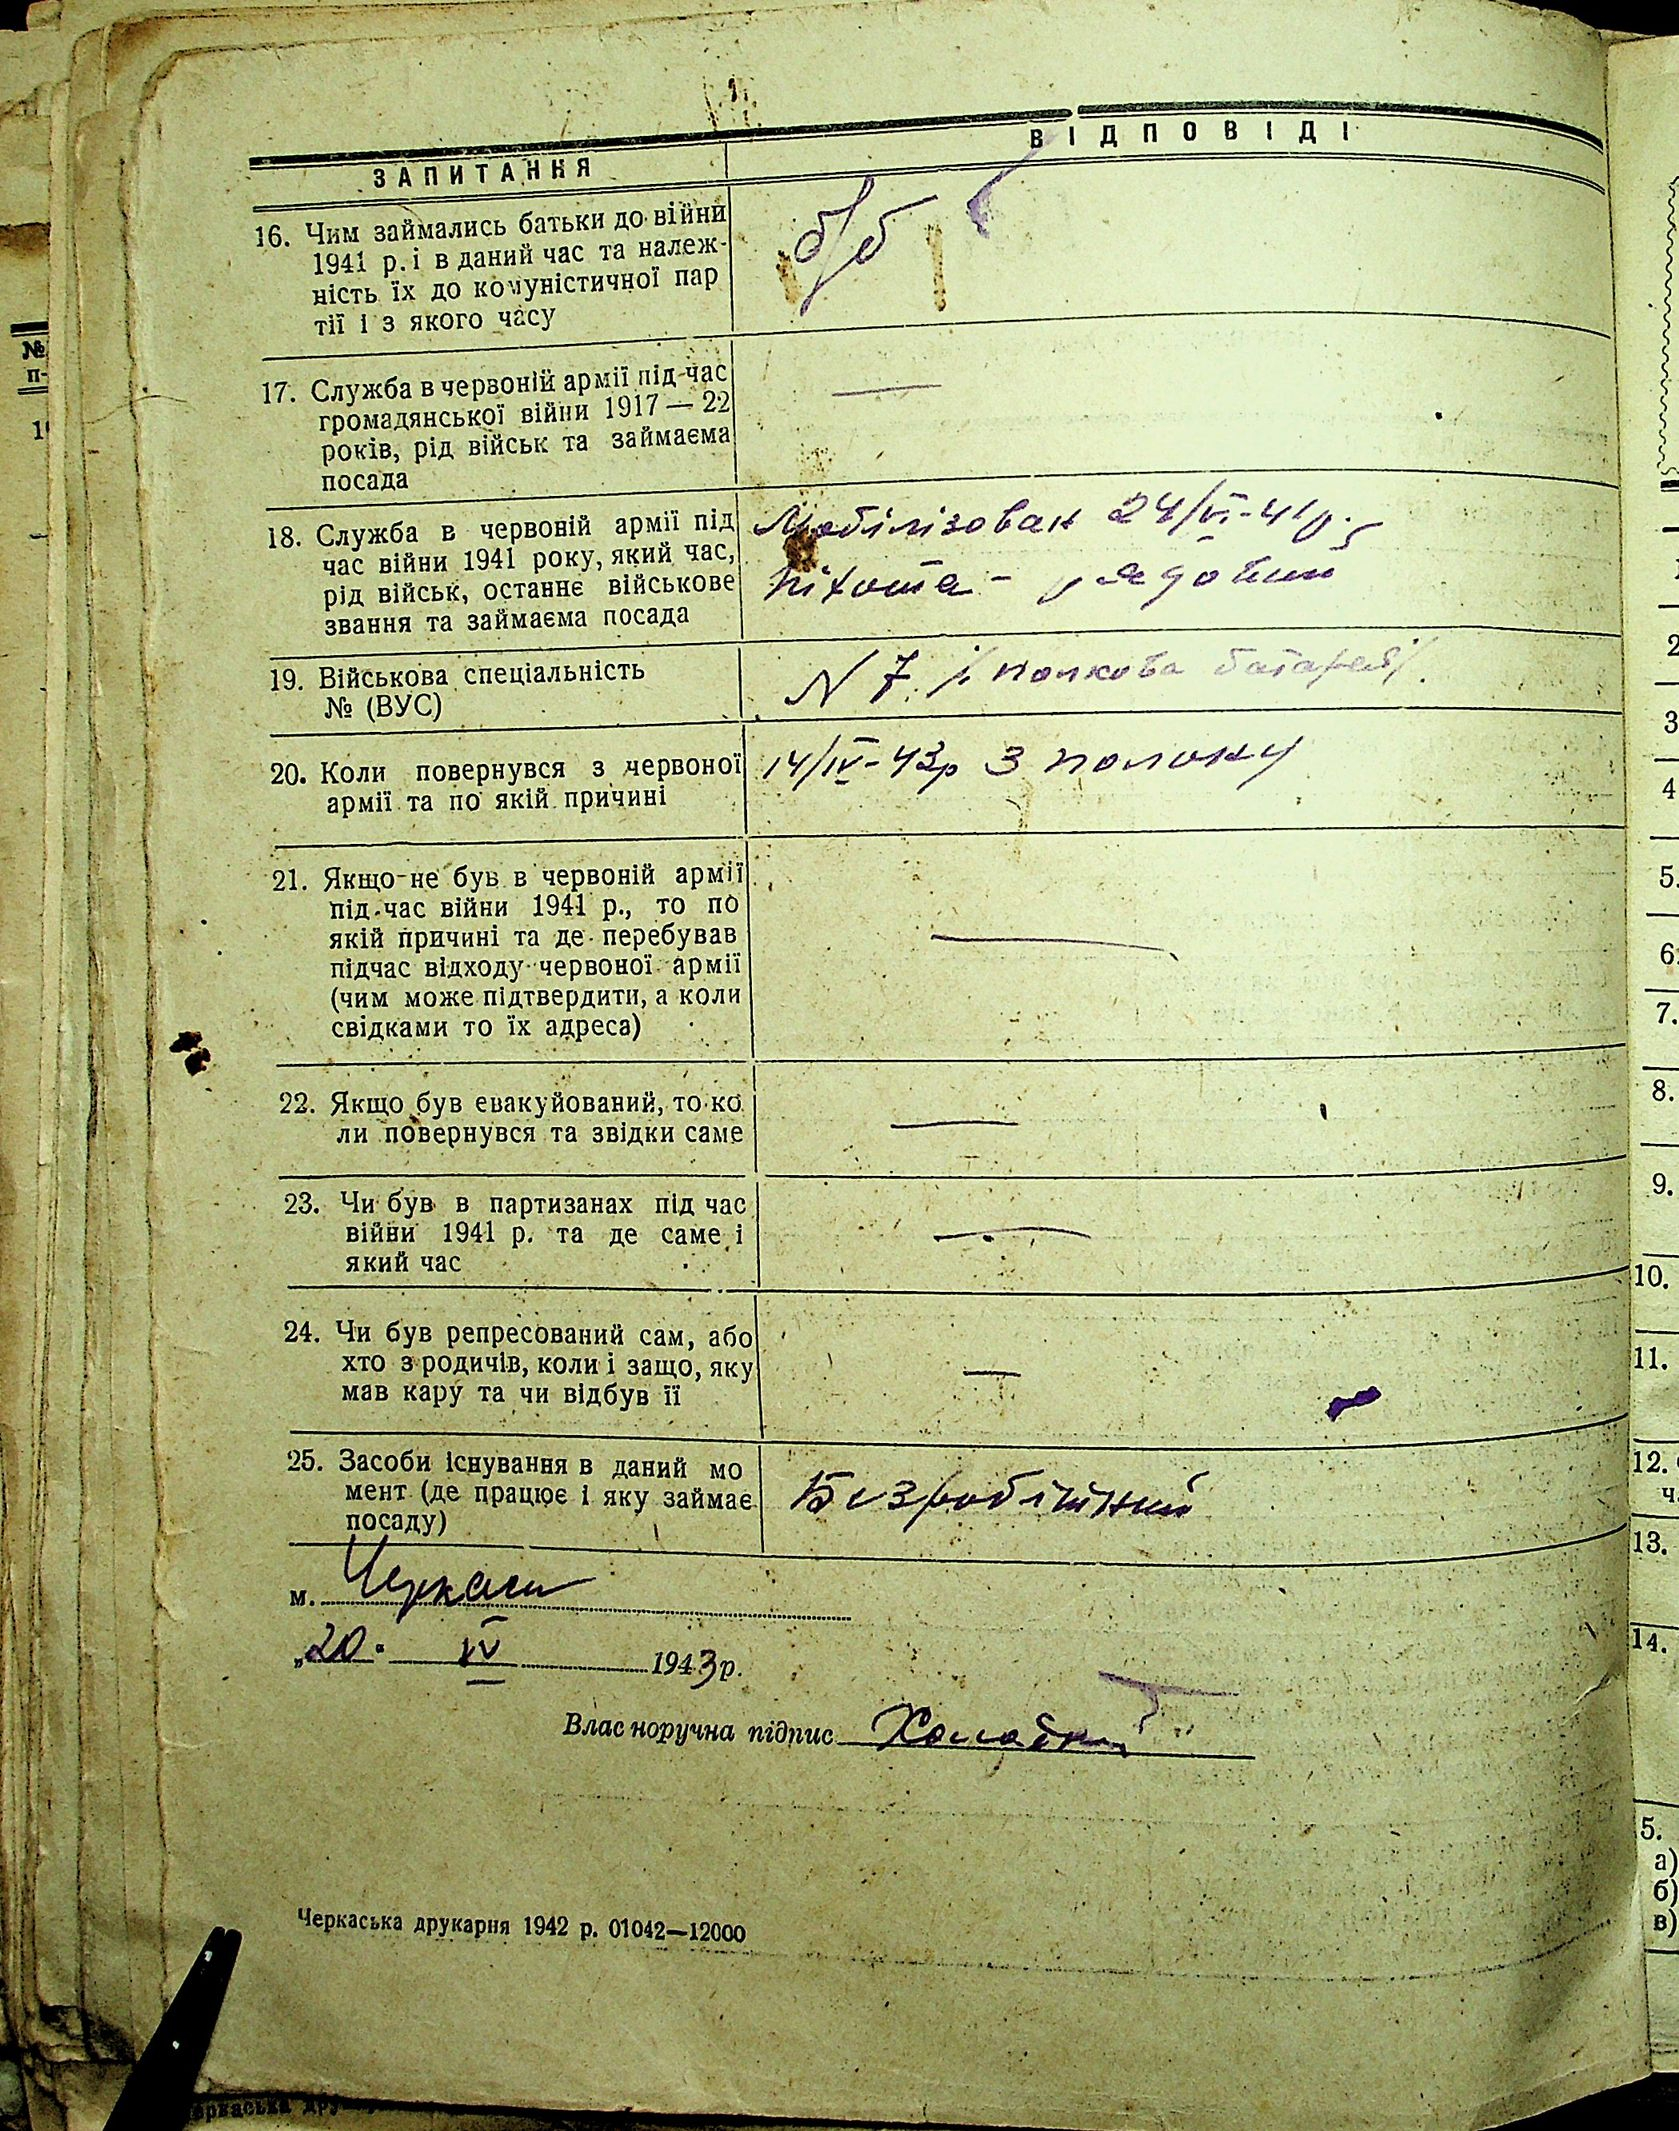 ЗАПИТАННЯ
ВІДПОВІДІ
16. Чим займались батьки до війни
1941 р. і в даний час та належ-
ність їх до комуністичної пар
тії і з якого часу
б/б
17. Служба в червоній армії під час
громадянської війни 1917 — 22
років, рід військ та займаєма
посада
—
18. Служба в червоній армії під
час війни 1941 року, який час,
рід військ, останнє військове
звання та займаєма посада
Мобілізован 24/VI-41р.
піхота - рядовий
19. Військова спеціальність
№ (ВУС)
N 7 /полкова батарея/
20. Коли повернувся з червоної
армії та по якій причині
14/IV-43р з полону
21. Якщо не був в червоній армії
під час війни 1941 р., то по
якій причині та де перебував
підчас відходу червоної армії
(чим може підтвердити, а коли
свідками то їх адреса)
—
22. Якщо був евакуйований, то ко
ли повернувся та звідки саме
—
23. Чи був в партизанах під час
війни 1941 р. та де саме і
який час
—
24. Чи був репресований сам, або
хто з родичів, коли і защо, яку
мав кару та чи відбув її
—
25. Засоби існування в даний мо
мент (де працює і яку займає
посаду)
Безробітний
м. Черкаси
„20" IV 1943 р.
Власноручна підпис
Черкаська друкарня 1942 р. 01042—12000
№
п-
2
3
4
5.
6.
7.
8.
9.
10.
11.
12.
13.
14.
5.
а)
б)
в)